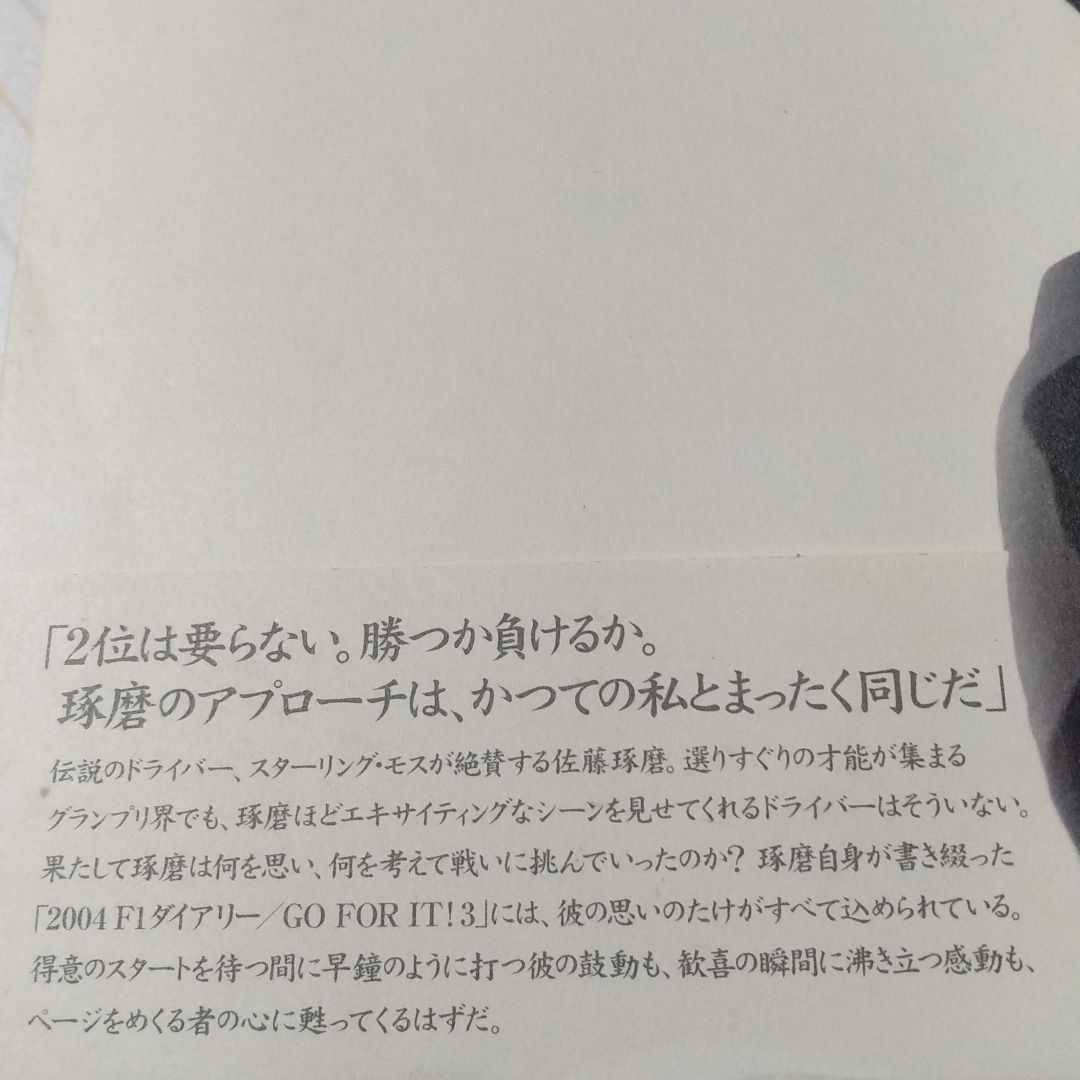 「2位は要らない。勝つか負けるか。
琢磨のアプローチは、かつての私とまったく同じだ」
伝説のドライバー、スターリング・モスが絶賛する佐藤琢磨。選りすぐりの才能が集まる
グランプリ界でも、琢磨ほどエキサイティングなシーンを見せてくれるドライバーはそういない。
果たして琢磨は何を思い、何を考えて戦いに挑んでいったのか? 琢磨自身が書き綴った
「2004 F1ダイアリー/GO FOR IT! 3」には、彼の思いのたけがすべて込められている。
得意のスタートを待つ間に早鐘のように打つ彼の鼓動も、歓喜の瞬間に沸き立つ感動も、
ページをめくる者の心に甦ってくるはずだ。